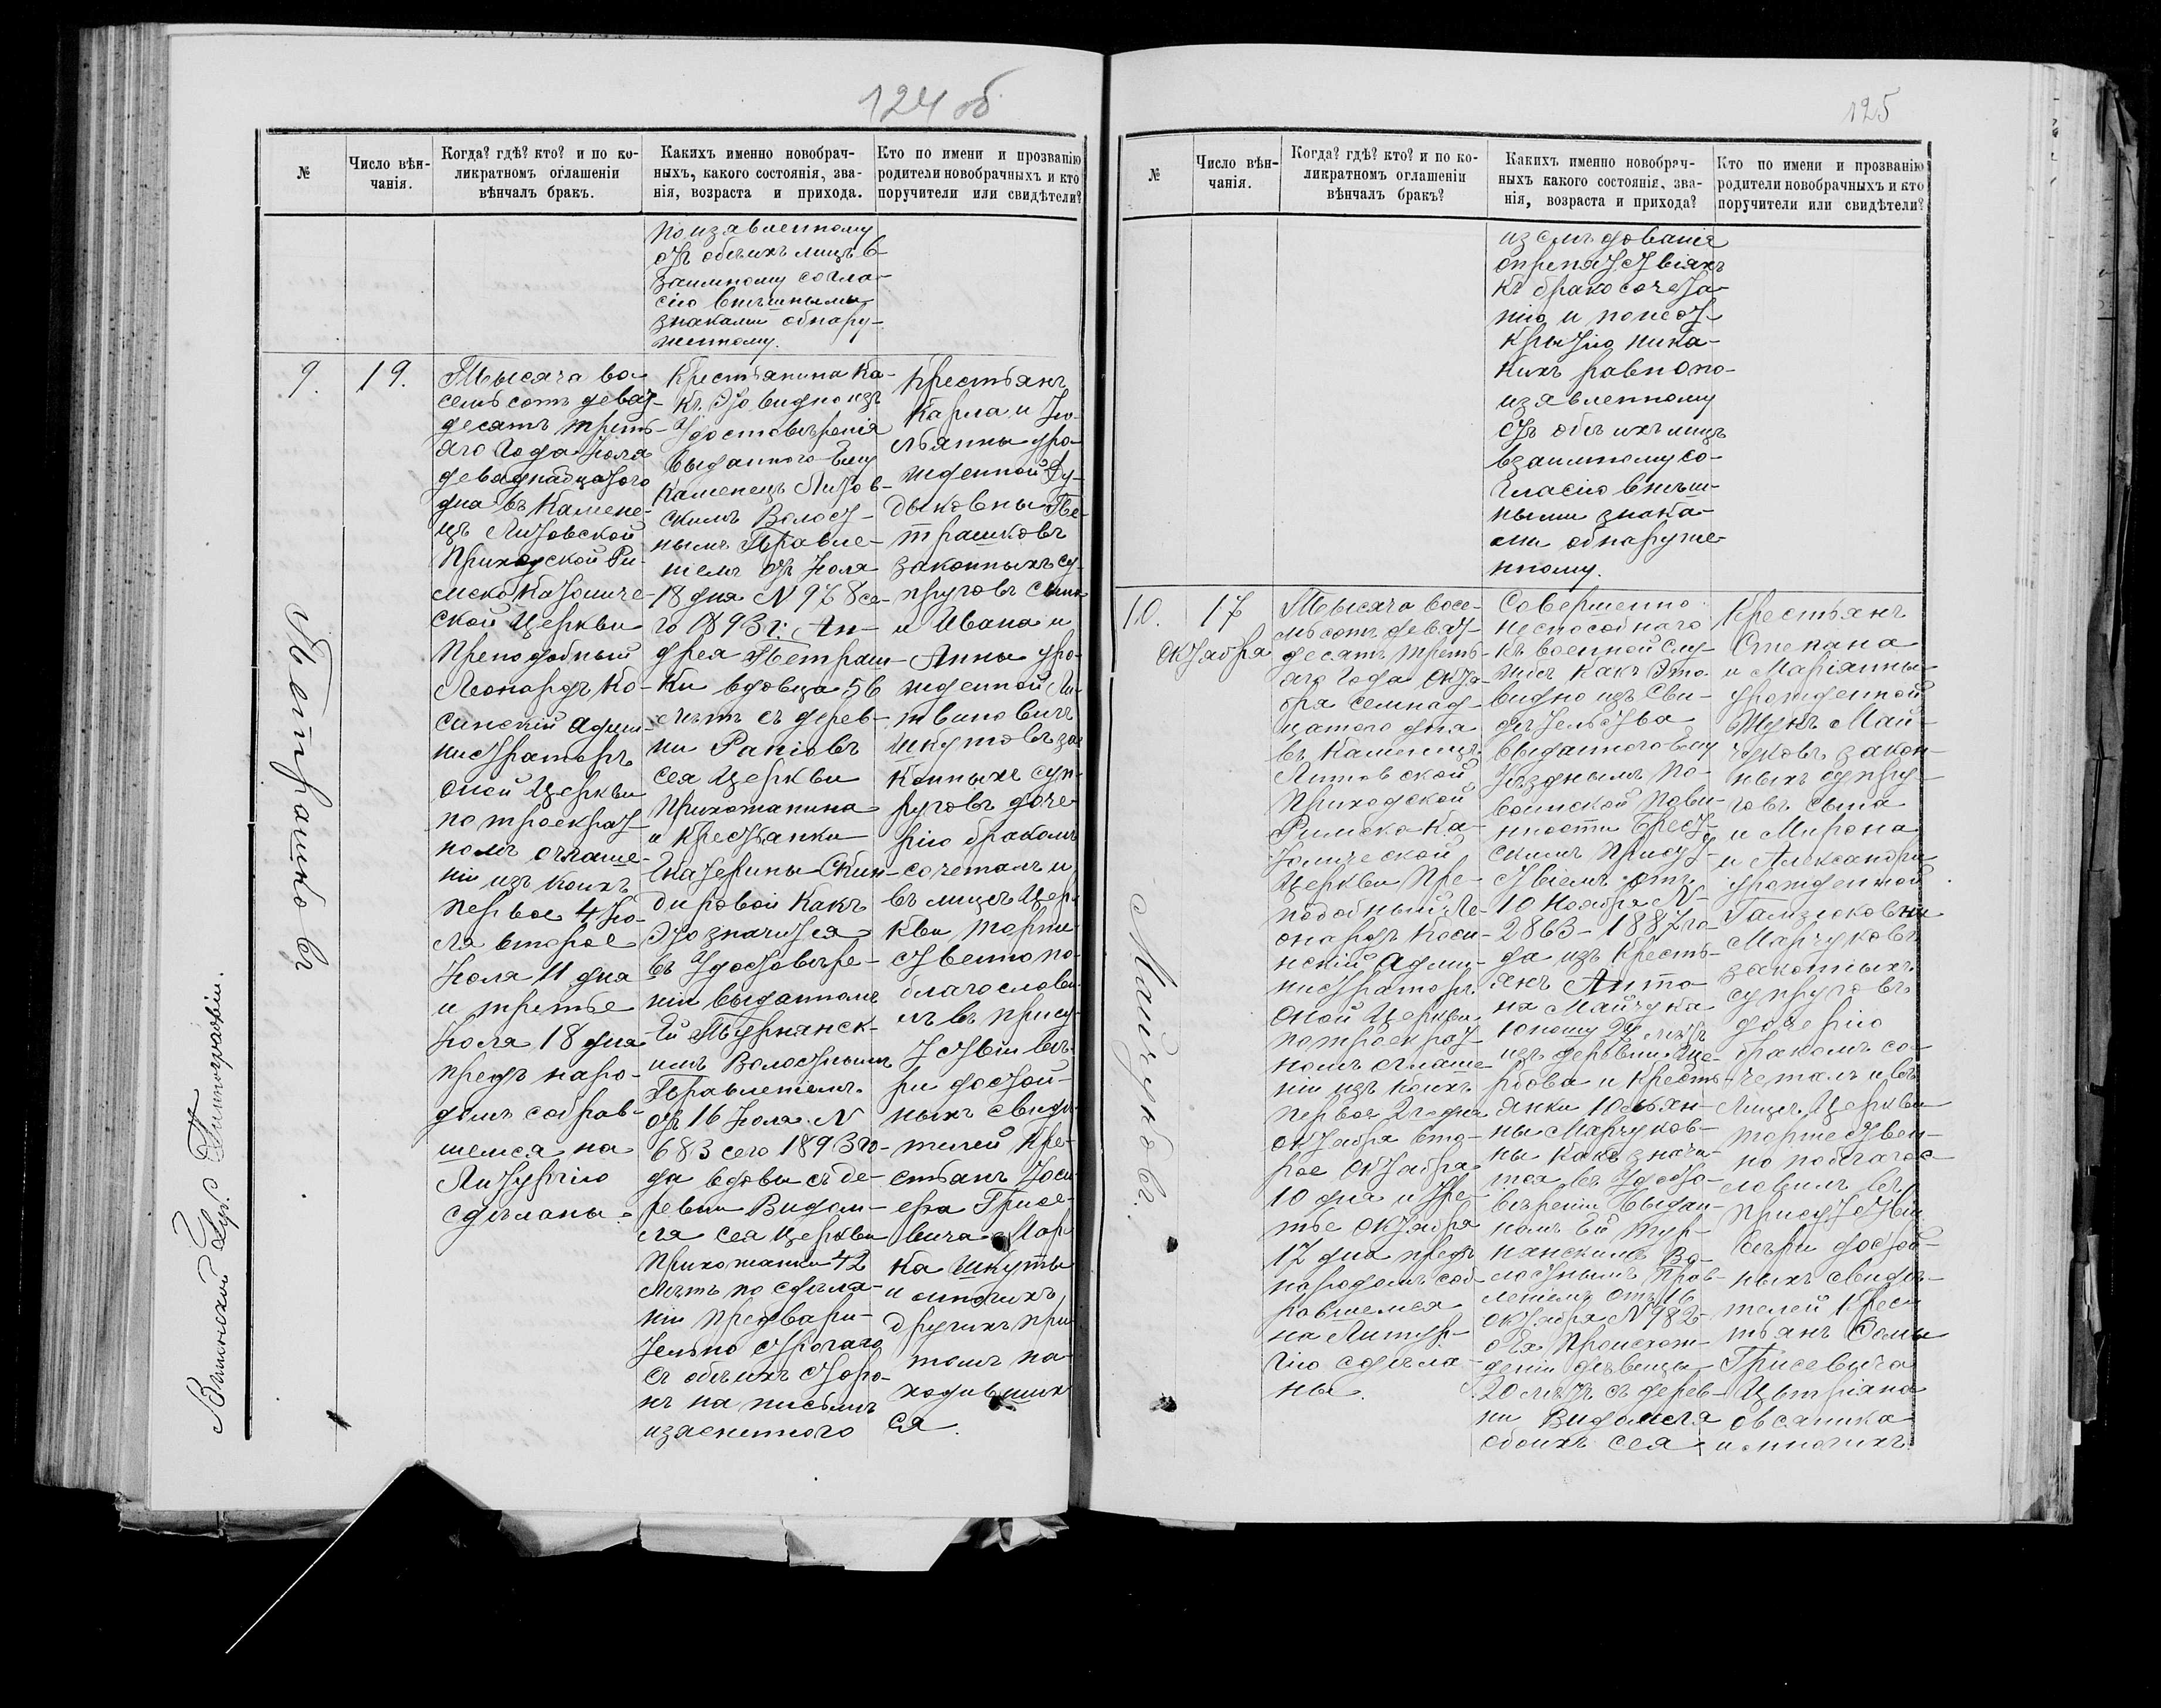 124 об
№
Число вѣн-
чанія.
Когда? гдѣ? кто? и по ко-
ликратномъ оглашеніи
вѣнчалъ бракъ.
Какихъ именно новобрач-
ныхъ, какого состоянія, зва-
нія, возраста и прихода.
Кто по имени и прозванію
родители новобрачныхъ и кто
поручители или свидѣтели?
по изявленному
отъ обѣихъ лицъ в-
заимному согла-
сію внѣшными
знаками обнару-
женному.
9.
19.
Петрашковъ
Тысяча во-
семьсотъ девят-
десятъ треть-
яго года Іюля
девятнадцатого
дня въ Камене-
цъ Литовской
Приходской Ри-
мско Католиче-
ской Церкви
Преподобный
Леонардъ Ко-
синскій Адми-
нистраторъ
оной Церкви
по троекрат-
номъ оглаше-
ніи изъ коихъ
первое 4 Ію-
ля второе
Іюля 11 дня
и третье
Іюля 18 дня
предъ наро-
домъ собрав-
шемся на
Литургію
сдѣланы.
Крестьянина Ка-
къ Это видно изъ
Удостовѣренія
выданного Ему
Каменецъ Литов-
скимъ Волост-
нымъ Правле-
ніемъ отъ Іюля
18 дня N 978 се-
го 1893 г. Ан-
дрея Петраш-
ки вдовца 56
лѣтъ съ дерев-
ни Раціовъ
сея Церкви
Прихожанина
и Крестьянки
Екатерины Скин-
дировой Какъ
Это значится
въ Удостовѣре-
ніи выданномъ
Ей Турнянск-
имъ Волостнымъ
Правленіемъ
отъ 16 Іюля N
683 сего 1893 го-
да вдовы съ де-
ревни Видом-
ля сея Церкви
Прихожанки 42
лѣтъ по сдѣла-
ніи предвари-
тельно строгаго
съ обѣихъ сторо-
нъ на письмѣ
изясненного
Крестьянъ
Карла и Ю-
льянны уро-
жденной Ду-
дыковны Пе-
трашковъ
законныхъ су-
пруговъ сына
и Ивана и
Анны уро-
жденной Ли-
твиновичъ
Шкутовъ за-
конныхъ суп-
руговъ доче-
рію бракомъ
сочеталъ и
въ лицѣ Цер-
кви торже-
ственно по-
благослови-
лъ въ прису-
тствіи вѣ-
ри достой-
ныхъ свидѣ-
телей Кре-
стьянъ Іоси-
ефа Грисе-
вича Мар-
ка Шкуты
и многихъ
другихъ при
томъ на-
ходивших
ся.
Виленской Губ. Типографіи.
125
№
Число вѣн-
чанія.
Когда? гдѣ? кто? и по ко-
ликратномъ оглашеніи
вѣнчалъ бракъ?
Какихъ именно новобрач-
ныхъ какого состоянія, зва-
нія, возраста и прихода?
Кто по имени и прозванію
родители новобрачныхъ и кто
поручители или свидѣтели?
изслѣдованія
опрепятствіяхъ
къ бракосочета-
нію и понеот-
крытію ника-
кихъ равнопо-
изявленному
отъ обѣихъ лицъ
взаимному со-
гласію внѣш-
ными знака-
ми обнаруже-
нному.
10.
17
октября
Майчуковъ.
Тысяча восе-
мьсотъ девят-
десятъ треть-
яго года Октя-
бря семнад-
цатого дня
въ Каменцѣ
Литовской
Приходской
Римско-Ка-
толической
Церкви Пре-
подобный Ле-
онардъ Коси-
нскій Адми-
нистраторъ
оной Церкви
по троекрат-
номъ оглаше-
ніи изъ коихъ
первое 2го дня
октября вто-
рое октября
10 дня и тре-
тье октября
17 дня предъ
народомъ соб-
равшемся
на Литур-
гію сдѣла-
ны.
Совершенно
неспособнаго
къ военной слу-
жбѣ какъ Это
видно изъ Сви-
дѣтельства
выданного Ему
Уѣзднымъ по
воинской пови-
нности Брест-
скимъ Присут-
ствіемъ отъ
10 Ноября N
2863 - 1887 го-
да изъ кресть-
янъ Анто-
на Майчука
юношу 27 лѣтъ
изъ деревни Ще-
рбова и кресть-
янки Юльян-
ны Марчуков-
ны какъ значи-
тся въ Удосто-
вѣреніи выдан-
номъ Ей Тур-
нянскимъ Во-
лостнымъ Прав-
леніемъ отъ 16
октября N 982
о Ея происхож-
деніи дѣвицы
20 лѣтъ съ дерев-
ни Видомля
обоихъ сея
Крестьянъ
Степана
и Маріянны
урожденной
Май-
чуковъ закон-
ныхъ супру-
говъ сына
и Мирона
и Александры
урожденной
Гамзюковны
Марчуковъ
законныхъ
супруговъ
дочерію
бракомъ со-
четалъ и въ
Лицѣ Церкви
торжествен-
но поблагос-
ловилъ въ
присутствіи
вѣры достой-
ныхъ свидѣ-
телей крес-
тьянъ Фомы
Грисевича
Цыпріяна
Овсяника
и многихъ